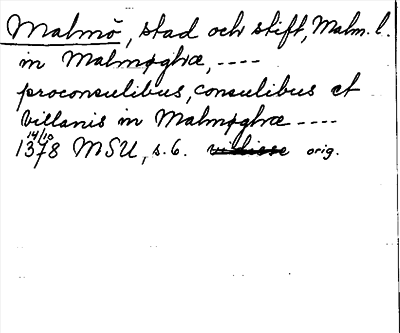 Malmö, stad och stift, Malm. l.
in Malmøghæ, ----
proconsulibus, consulibus et
villanis in Malmøghæ ----
14/10
1378 MSU, s. 6. orig.